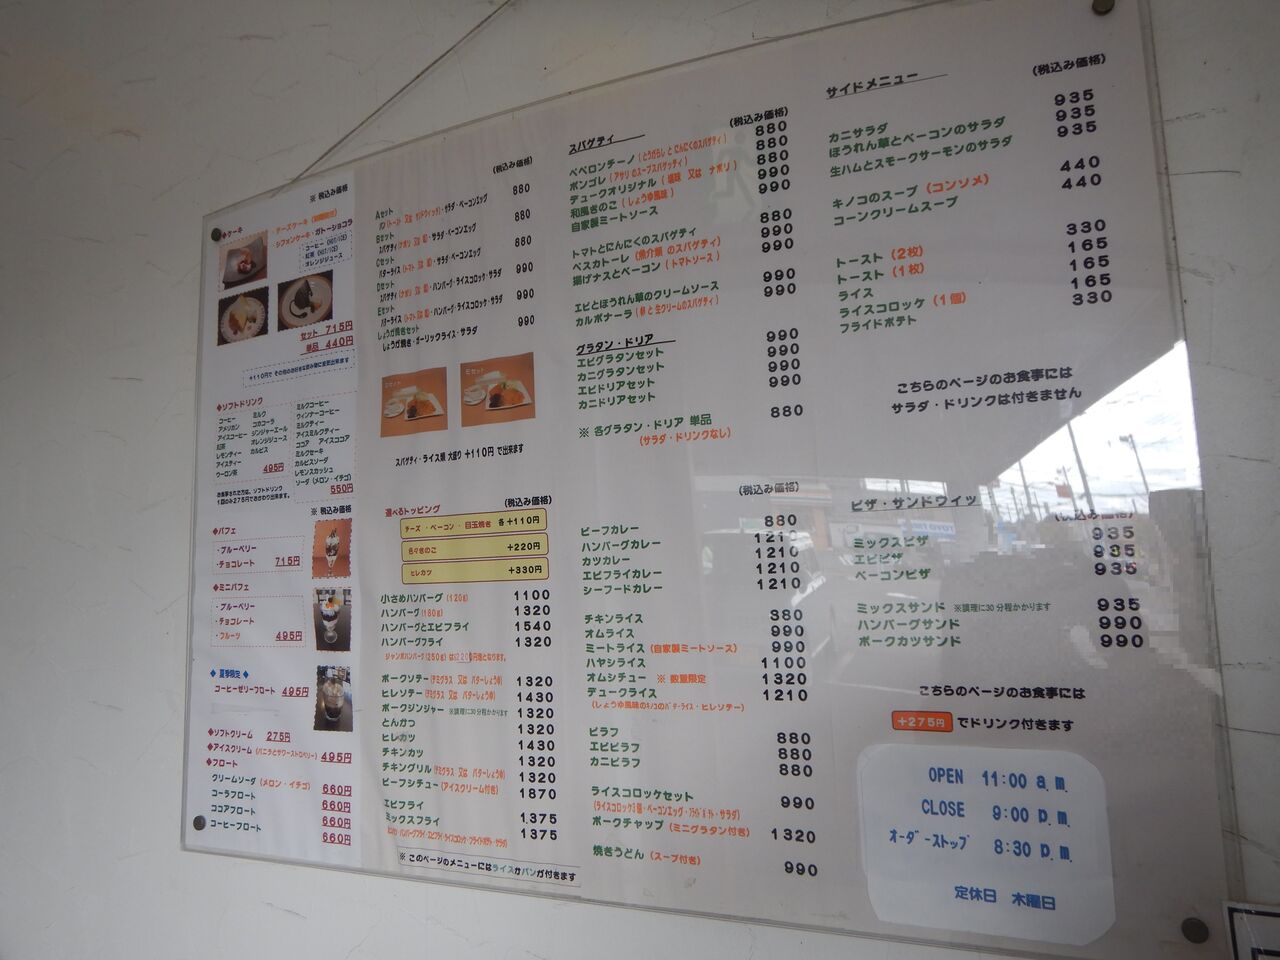 ※ 税込み価格
◆ケーキ
・チーズケーキ
・シフォンケーキ・ガトーショコラ
コーヒー (HOT/ICE)
紅茶 (HOT/ICE)
オレンジジュース
セット 715円
単品 440円
+110円で その他のお好きな飲み物に変更出来ます
◆ソフトドリンク
コーヒー
アメリカン
アイスコーヒー
紅茶
レモンティー
アイスティー
ウーロン茶
ミルク
コカコーラ
ジンジャーエール
オレンジジュース
カルピス
495円
ミルクコーヒー
ウィンナーコーヒー
ミルクティー
アイスミルクティー
ココア アイスココア
ミルクセーキ
カルピスソーダ
レモンスカッシュ
ソーダ (メロン・イチゴ)
550円
お食事された方は、ソフトドリンク
1回のみ275円でおかわり出来ます。
※ 税込み価格
◆パフェ
・ブルーベリー
・チョコレート 715円
◆ミニパフェ
・ブルーベリー
・チョコレート
・フルーツ 495円
◆ 夏季限定 ◆
コーヒーゼリーフロート 495円
◆ソフトクリーム 275円
◆アイスクリーム (バニラとサワーストロベリー) 495円
◆フロート
クリームソーダ (メロン・イチゴ) 660円
コーラフロート 660円
ココアフロート 660円
コーヒーフロート 660円
(税込み価格)
Aセット 880
パン (トースト 又は サンドウィッチ)・サラダ・ベーコンエッグ
Bセット 880
スパゲティ (ナポリ 又は 塩)・サラダ・ベーコンエッグ
Cセット 880
バターライス (トマト 又は 塩)・サラダ・ベーコンエッグ
Dセット 990
スパゲティ (ナポリ 又は 塩)・ハンバーグ・ライスコロッケ・サラダ
Eセット 990
バターライス (トマト 又は 塩)・ハンバーグ・ライスコロッケ・サラダ
しょうが焼きセット 990
しょうが焼き・ガーリックライス・サラダ
Dセット
Eセット
スパゲティ・ライス類 大盛り +110円 で出来ます
選べるトッピング (税込み価格)
チーズ ・ ベーコン ・ 目玉焼き 各+110円
色々きのこ +220円
ヒレカツ +330円
小さめハンバーグ (120g) 1100
ハンバーグ (180g) 1320
ハンバーグとエビフライ 1540
ハンバーグフライ 1320
ジャンボハンバーグ (250g) は220円増となります。
ポークソテー (デミグラス 又は バターしょうゆ) 1320
ヒレソテー (デミグラス 又は バターしょうゆ) 1430
ポークジンジャー ※調理に30分程かかります 1320
とんかつ 1320
ヒレカツ 1430
チキンカツ 1320
チキングリル (デミグラス 又は バターしょうゆ) 1320
ビーフシチュー (アイスクリーム付き) 1870
エビフライ 1,375
ミックスフライ 1375
※ このページのメニューにはライスかパンが付きます
スパゲティ (税込み価格)
ペペロンチーノ (とうがらし と にんにくのスパゲティ) 880
ボンゴレ (アサリ のスープスパゲッティ) 880
デュークオリジナル (塩味 又は ナポリ) 880
和風きのこ (しょうゆ風味) 990
自家製ミートソース 990
トマトとにんにくのスパゲティ 880
ペスカトーレ (魚介類 のスパゲティ) 990
揚げナスとベーコン (トマトソース) 990
エビとほうれん草のクリームソース 990
カルボナーラ (卵 と 生クリームのスパゲティ) 990
グラタン・ドリア
エビグラタンセット 990
カニグラタンセット 990
エビドリアセット 990
カニドリアセット 990
※ 各グラタン・ドリア 単品 880
(サラダ・ドリンクなし)
(税込み価格)
ビーフカレー 880
ハンバーグカレー 1210
カツカレー 1210
エビフライカレー 1210
シーフードカレー 1210
チキンライス 880
オムライス 990
ミートライス (自家製ミートソース) 990
ハヤシライス 1100
オムシチュー ※ 数量限定 1320
デュークライス 1210
(しょうゆ風味のキノコのバターライス・ヒレソテー)
ピラフ 880
エビピラフ 880
カニピラフ 880
ライスコロッケセット 990
ポークチャップ (ミニグラタン付き) 1320
焼きうどん (スープ付き) 990
サイドメニュー (税込み価格)
カニサラダ 935
ほうれん草とベーコンのサラダ 935
生ハムとスモークサーモンのサラダ 935
キノコのスープ (コンソメ) 440
コーンクリームスープ 440
トースト (2枚) 330
トースト (1枚) 165
ライス 165
ライスコロッケ (1個) 165
フライドポテト 330
こちらのページのお食事には
サラダ・ドリンクは付きません
ピザ・サンドウィッチ
(税込み価格)
ミックスピザ 935
エビピザ 935
ベーコンピザ 935
ミックスサンド ※調理に30分程かかります 935
ハンバーグサンド 990
ポークカツサンド 990
こちらのページのお食事には
+275円 でドリンク付きます
OPEN 11:00 a.m.
CLOSE 9:00 p.m.
オーダーストップ 8:30 p.m.
定休日 木曜日